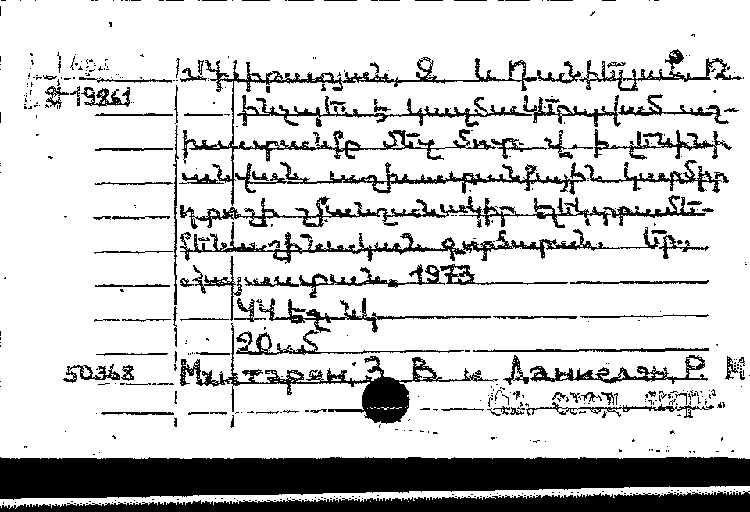 Հրս
2-19861
Մխիթարյան, Զ. և Դանիելյան, Ռ.
Ինչպես է կազմակերպված աշ-
խատանքը մեզ մոտ։ Վ. Ի. Լենինի
անվան աշխատանքային կարմիր
դրոշի շքանշանակիր էլեկտրամե-
քենաշինական գործարան. Եր.,
Հայաստան, 1973
44 էջ. նկ
20 սմ
50368 Мхитарян, З. В. и Даниелян, Р. М